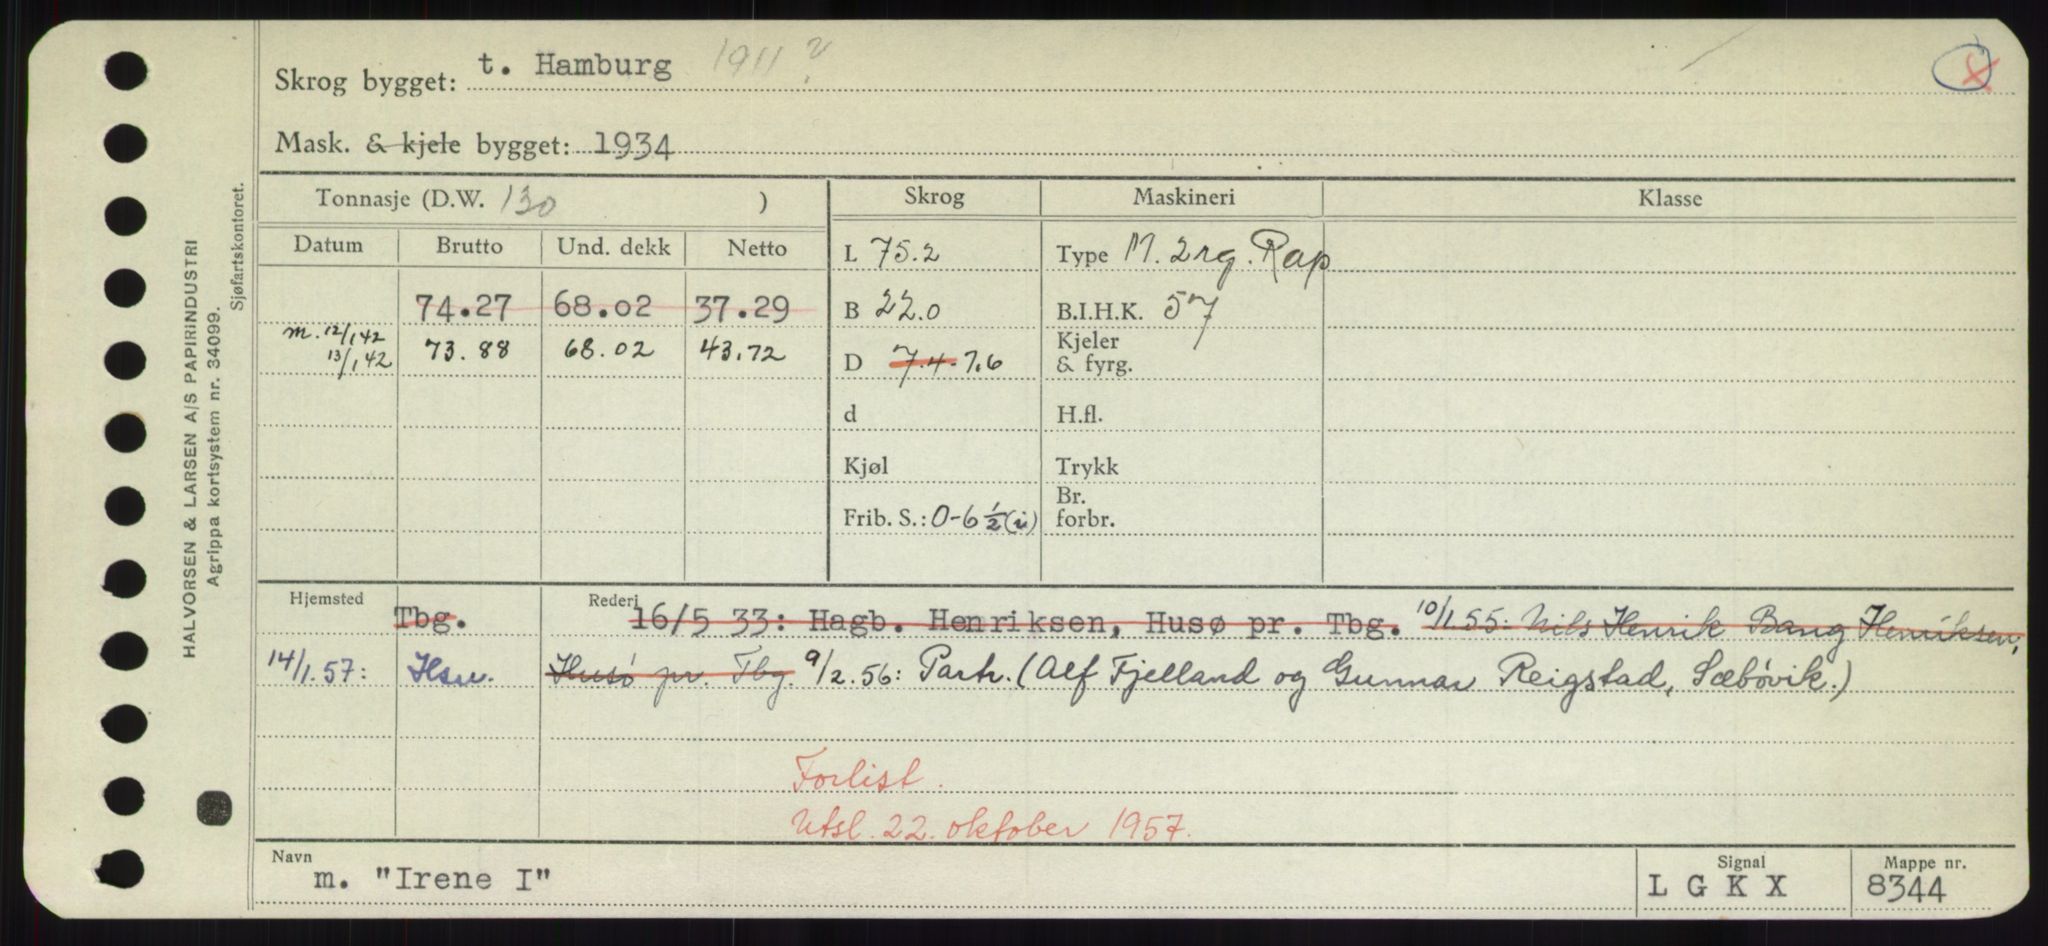 Skrog bygget: t. Hamburg 1911?
Mask. & kjele bygget: 1934
Tonnasje (D.W. 130 )
Skrog
Maskineri
Klasse
Datum Brutto Und. dekk Netto
74.27 68.02 37.29
m. 12/1.42
13/1.42 73.88 68.02 43.72
L 75.2
B 22.0
D 7.4 7.6
d
Kjøl
Frib. S.: 0-6 1/2 (i)
Type M. 2 rg. Rap
B.I.H.K. 57
Kjeler
& fyrg.
H.fl.
Trykk
Br.
forbr.
Hjemsted Rederi
Tbg. 16/5 33: Hagb. Henriksen, Husø pr. Tbg. 10/1.55: Nils Henrik Bang Henriksen,
14/1.57: Hsu. Husø pr. Tbg. 9/2.56: Partr. (Alf Fjelland og Gunnar Reigstad, Sæbøvik.)
Forlist.
Utsl. 22. oktober 1957.
Navn Signal Mappe nr.
m. "Irene I" L G K X 8344
HALVORSEN & LARSEN A/S PAPIRINDUSTRI
Agrippa kortsystem nr. 34099.
Sjøfartskontoret.